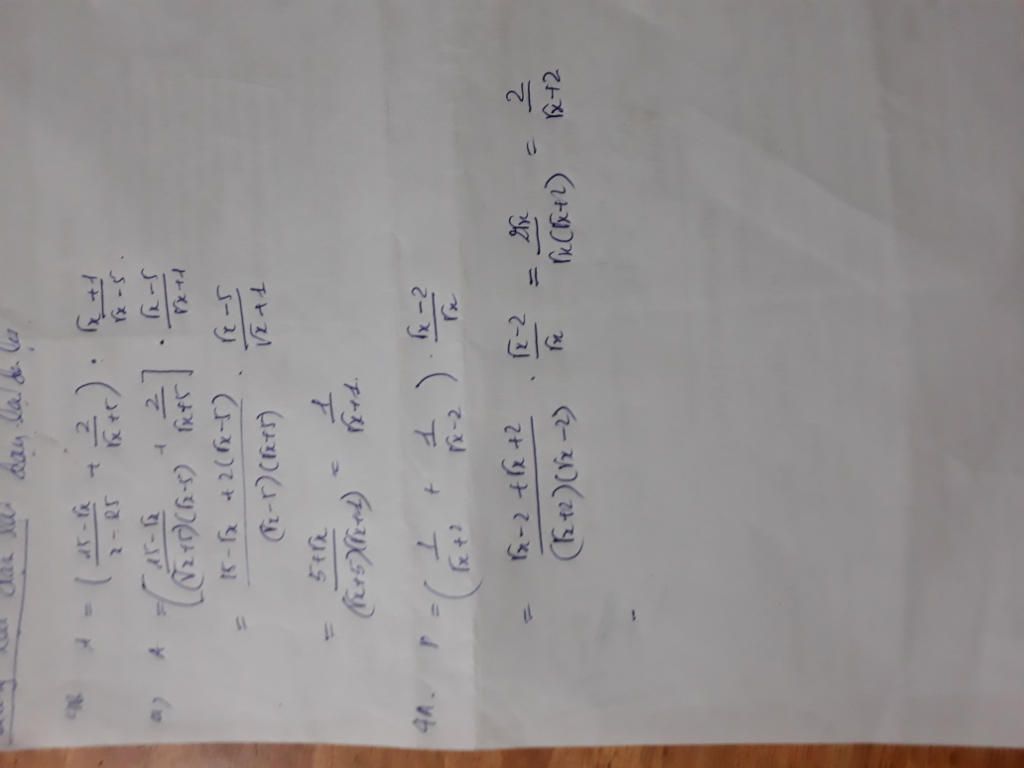 A = ( (15-√x)/(x-25) + 2/(√x+5) ) : (√x+1)/(√x-5).
a) A = [ (15-√x)/((√x+5)(√x-5)) + 2/(√x+5) ] . (√x-5)/(√x+1)
= (15-√x+2(√x-5))/((√x-5)(√x+5)) . (√x-5)/(√x+1)
= (5+√x)/((√x+5)(√x+1)) = 1/(√x+1).
P = ( 1/(√x+2) + 1/(√x-2) ) . (√x-2)/√x
= (√x-2+√x+2)/((√x+2)(√x-2)) . (√x-2)/√x = 2√x/(√x(√x+2)) = 2/(√x+2)